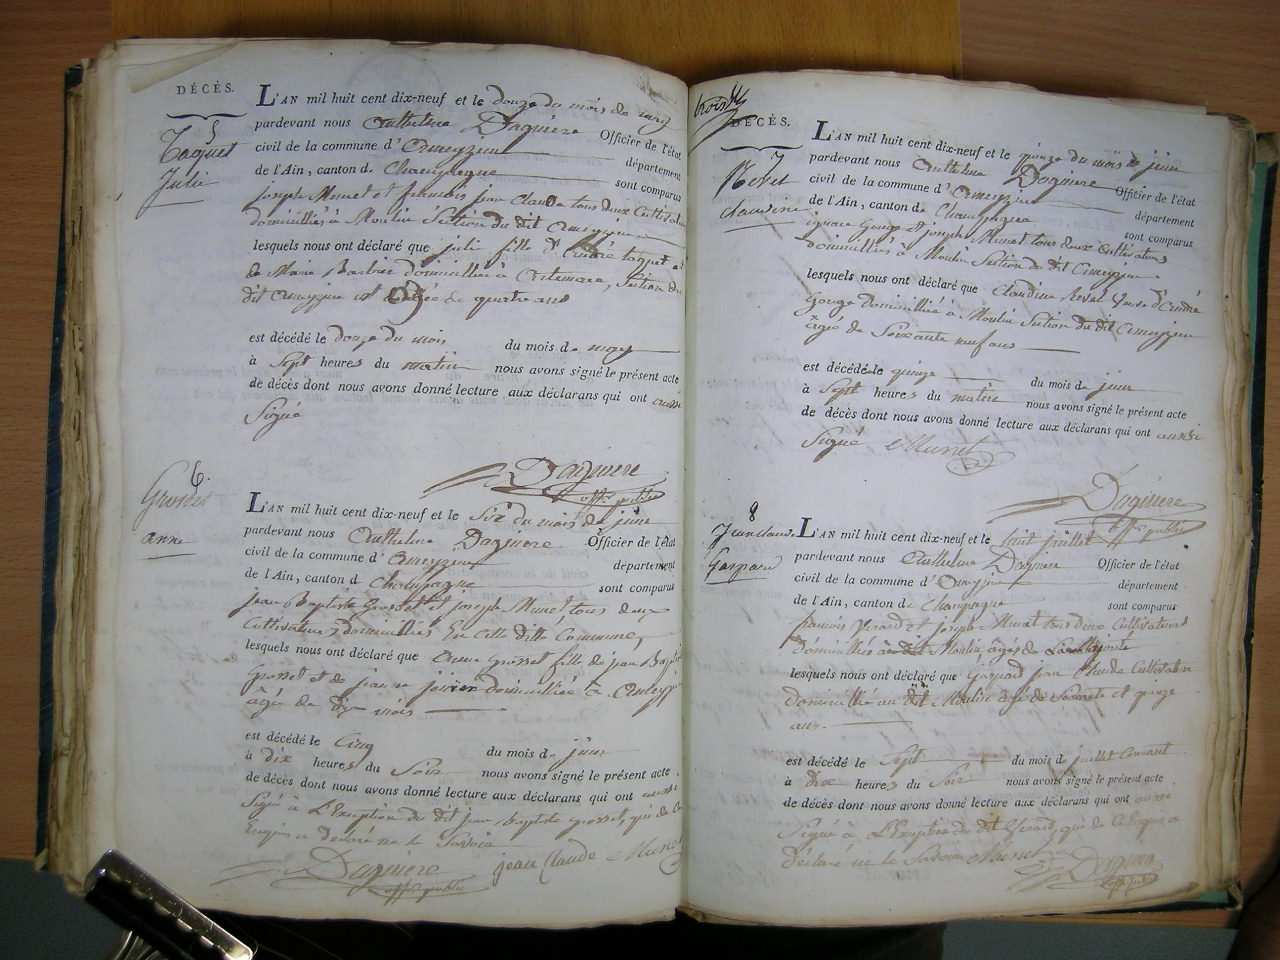 DÉCÈS.
5
Taguet
Julie
L'AN mil huit cent dix-neuf et le douze du mois de may
pardevant nous Anthelme Daguiere Officier de l'état
civil de la commune d'Ameyzieu département
de l'Ain, canton de Champagne sont comparus
joseph Munet et françois jean Claude tous deux Cultivateurs
domicilliés à Moulin Section du dit Ameyzieu
lesquels nous ont déclaré que julie fille d'André taguet et
de Marie Barbier domicilliée à Artemare, Section du
dit Ameyzieu âgée de quatre ans
est décédé le douze du mois du mois de may
à Sept heures du matin nous avons signé le présent acte
de décès dont nous avons donné lecture aux déclarans qui ont aussi
Signé
Daguiere
offr public
6
Grosset
anne
L'AN mil huit cent dix-neuf et le Six du mois de juin
pardevant nous Anthelme Daguiere Officier de l'état
civil de la commune d'Ameyzieu département
de l'Ain, canton de Champagne sont comparus
Jean Baptiste Grosset et joseph Munet tous deux
Cultivateurs, domicilliés En Cette ditte Commune,
lesquels nous ont déclaré que Anne grosset fille de jean Baptiste
Grosset et de domicilliée à Ameyzieu
âgée de dix mois
est décédé le Cinq du mois de juin
à dix heures du Soir nous avons signé le présent acte
de décès dont nous avons donné lecture aux déclarans qui ont aussi
Signé à L'Exeption du dit jean baptiste grosset, qui de Ce
Enquis a déclaré ne le Savoir
Daguiere jean Claude Munet
offr public
trois
DÉCÈS.
7
Revet
Claudine
L'AN mil huit cent dix-neuf et le quinze du mois de juin
pardevant nous Anthelme Daguiere Officier de l'état
civil de la commune d'Ameyzieu département
de l'Ain, canton de Champagne sont comparus
ignace Gouge et joseph Munet tous deux Cultivateurs
domicilliés à Moulin Section du dit Ameyzieu
lesquels nous ont déclaré que Claudine Revet Veuve d'André
Gouge domicilliée à Moulin Section du dit Ameyzieu
âgée de Soixante neuf ans
est décédé le quinze du mois de juin
à Sept heures du matin nous avons signé le présent acte
de décès dont nous avons donné lecture aux déclarans qui ont aussi
Signé Munet
Daguiere
offr public
8
Jean Claude
Gaspard
L'AN mil huit cent dix-neuf et le huit juillet
pardevant nous Anthelme Daguiere Officier de l'état
civil de la commune d'Ameyzieu département
de l'Ain, canton de Champagne sont comparus
françois et joseph Munet tous deux Cultivateurs
domicilliés au dit Moulin, âgés de
lesquels nous ont déclaré que Gaspard jean Claude Cultivateur
domicillié au dit Moulin âgé de Soixante et quinze
ans
est décédé le Sept du mois de juillet Courant
à Dix heures du Soir nous avons signé le présent acte
de décès dont nous avons donné lecture aux déclarans qui ont aussi
Signé à L'Exeption du dit qui de Ce Enquis a
déclaré ne le Savoir Munet Daguiere
offr public